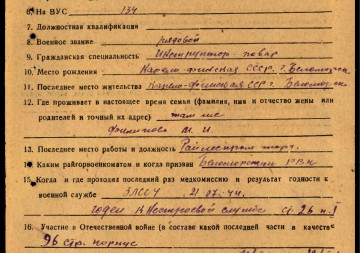 6. На ВУС 134
7. Должностная квалификация
8. Военное звание рядовой
9. Гражданская специальность Инструктор-повар
10. Место рождения Карело-финская СССР г. Беломорск
11. Последнее место жительства Карело-Финская ССР г. Беломорск
12. Где проживает в настоящее время семья (фамилия, имя и отчество жены или
родителей и точный их адрес) там же
М. И.
13. Последнее место работы и должность
14. Каким райгорвоенкоматом и когда призван Беломорским РВК
15. Когда и где проходил последний раз медкомиссию и результат годности к
военной службе 21.07.44.
годен к Нестроевой службе ст. 26
16. Участие в Отечественной войне (в составе какой последней части и качестве
96 стр. корпус